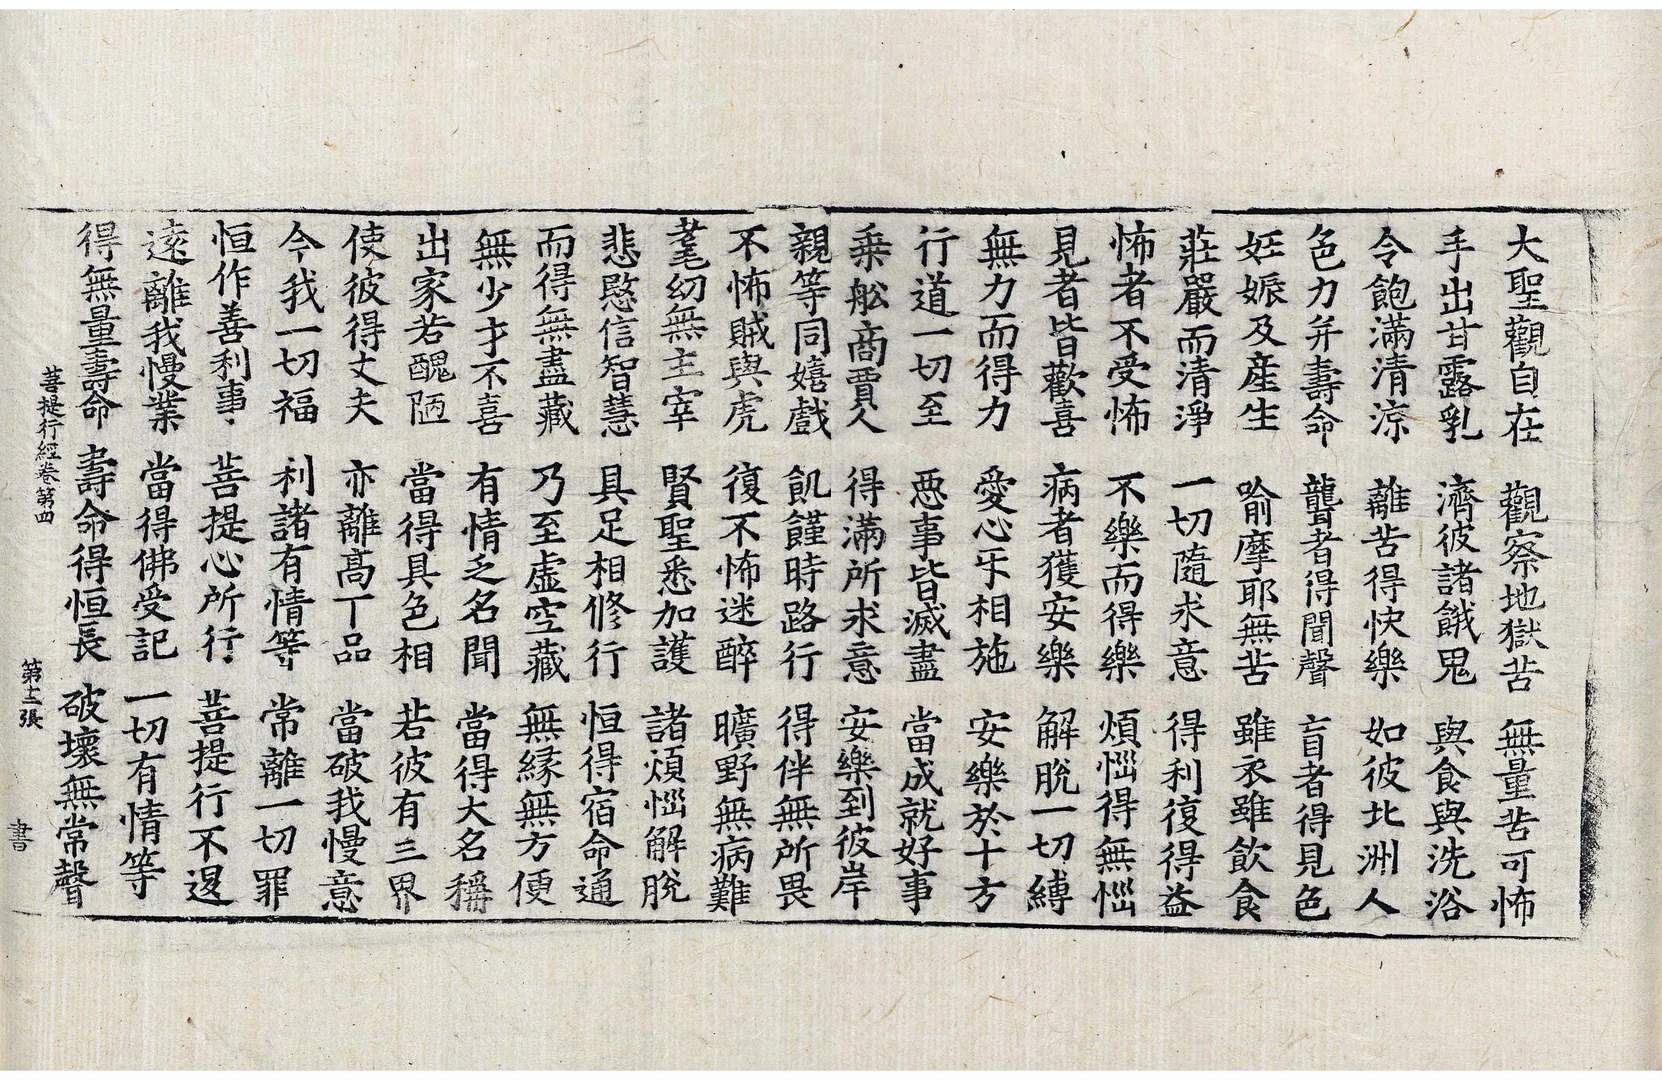 大聖觀自在 觀察地獄苦 無量苦可怖
手出甘露乳 濟彼諸餓鬼 與食與洗浴
令飽滿清涼 離苦得快樂 如彼北洲人
色力并壽命 聾者得聞聲 盲者得見色
妊娠及産生 喻摩耶無苦 雖衣雖飲食
莊嚴而清淨 一切隨求意 得利復得益
怖者不受怖 不樂而得樂 煩惱得無惱
見者皆歡喜 病者獲安樂 解脫一切縛
無力而得力 愛心互相施 安樂於十方
行道一切至 惡事皆滅盡 當成就好事
乗舩商賈人 得滿所求意 安樂到彼岸
親等同嬉戲 飢饉時路行 得伴無所畏
不怖賊與虎 復不怖迷醉 曠野無病難
耄幼無主宰 賢聖悉加護 諸煩惱解脫
悲愍信智慧 具足相修行 恒得宿命通
而得無盡藏 乃至虛空藏 無緣無方便
無少才不喜 有情乏名聞 當得大名稱
出家若醜陋 當得具色相 若彼有三界
使彼得丈夫 亦離高下品 當破我慢意
今我一切福 利諸有情等 常離一切罪
恒作善利事 菩提心所行 菩提行不退
遠離我慢業 當得佛受記 一切有情等
得無量壽命 壽命得恒長 破壞無常聲
菩提行經卷第四 第十二張 書